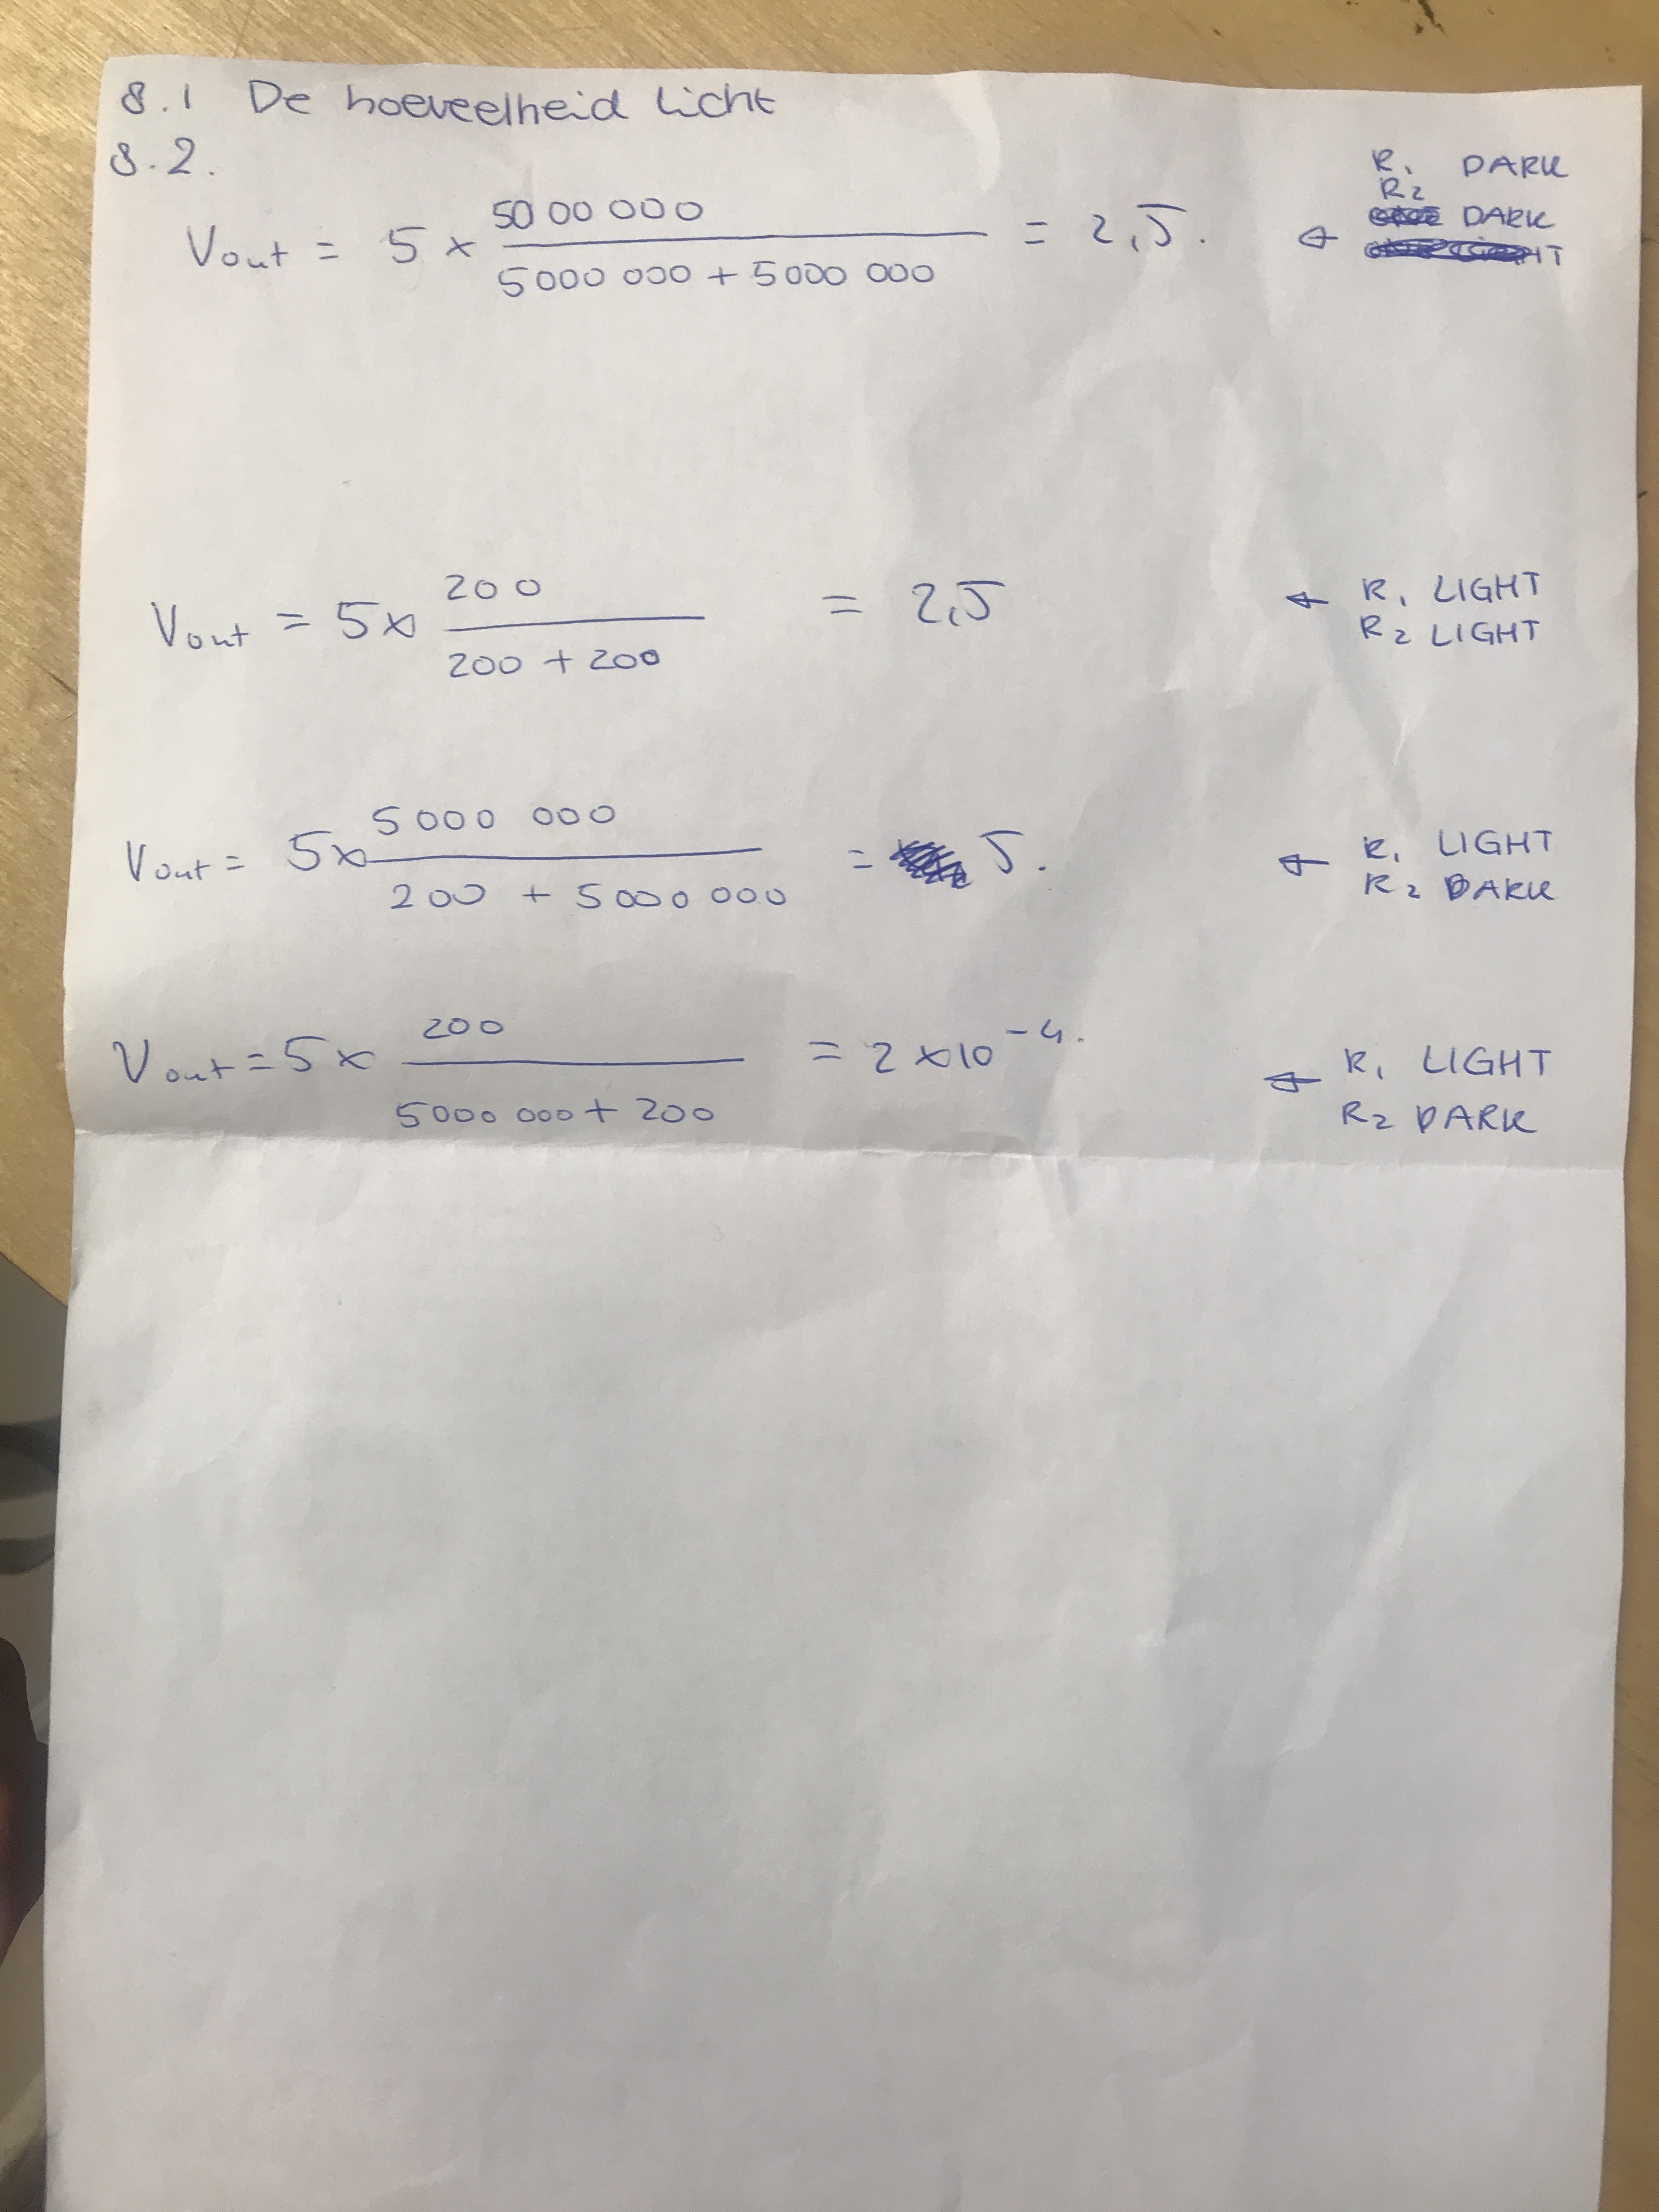 8.1 De hoeveelheid licht
8.2.
Vout = 5 × 5000 000 / 5000 000 + 5000 000 = 2,5. ← R1 DARK
R2 DARK
Vout = 5 × 200 / 200 + 200 = 2,5 ← R1 LIGHT
R2 LIGHT
Vout = 5 × 5000 000 / 200 + 5000 000 = 5. ← R1 LIGHT
R2 DARK
Vout = 5 × 200 / 5000 000 + 200 = 2 × 10⁻⁴. ← R1 LIGHT
R2 DARK